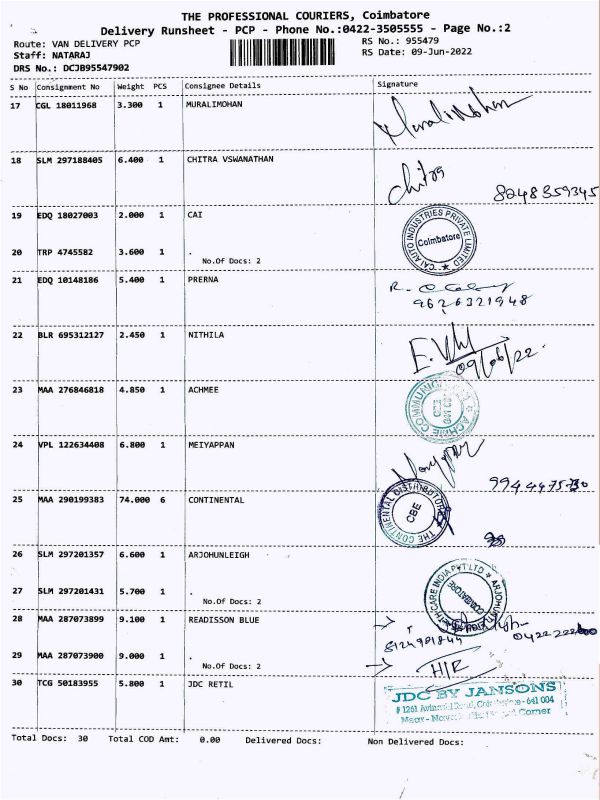 THE PROFESSIONAL COURIERS, Coimbatore
Delivery Runsheet - PCP - Phone No.:0422-3505555 - Page No.:2
Route: VAN DELIVERY PCP
RS No.: 955479
Staff: NATARAJ
RS Date: 09-Jun-2022
DRS No.: DCJB95547902
S No Consignment No Weight PCS Consignee Details Signature
17 CGL 18011968 3.300 1 MURALIMOHAN
Muralimohan
18 SLM 297188405 6.400 1 CHITRA VSWANATHAN
Chitra
8248359345
19 EDQ 18027003 2.000 1 CAI
CAI AUTO INDUSTRIES PRIVATE LIMITED
Coimbatore
20 TRP 4745582 3.600 1 .
No.Of Docs: 2
21 EDQ 10148186 5.400 1 PRERNA
9626321948
22 BLR 695312127 2.450 1 NITHILA
09/06/22
23 MAA 276846818 4.850 1 ACHMEE
24 VPL 122634408 6.800 1 MEIYAPPAN
25 MAA 290199383 74.000 6 CONTINENTAL
THE CONTINENTAL DISTRIBUTOR
CBE
26 SLM 297201357 6.600 1 ARJOHUNLEIGH
COIMBATORE
27 SLM 297201431 5.700 1 .
No.Of Docs: 2
28 MAA 287073899 9.100 1 READISSON BLUE
29 MAA 287073900 9.000 1 .
No.Of Docs: 2
H/R
30 TCG 50183955 5.800 1 JDC RETIL
JDC BY JANSONS
# 1261 Avinashi Road, Coimbatore - 641 004
Corner
Total Docs: 30 Total COD Amt: 0.00 Delivered Docs: Non Delivered Docs: